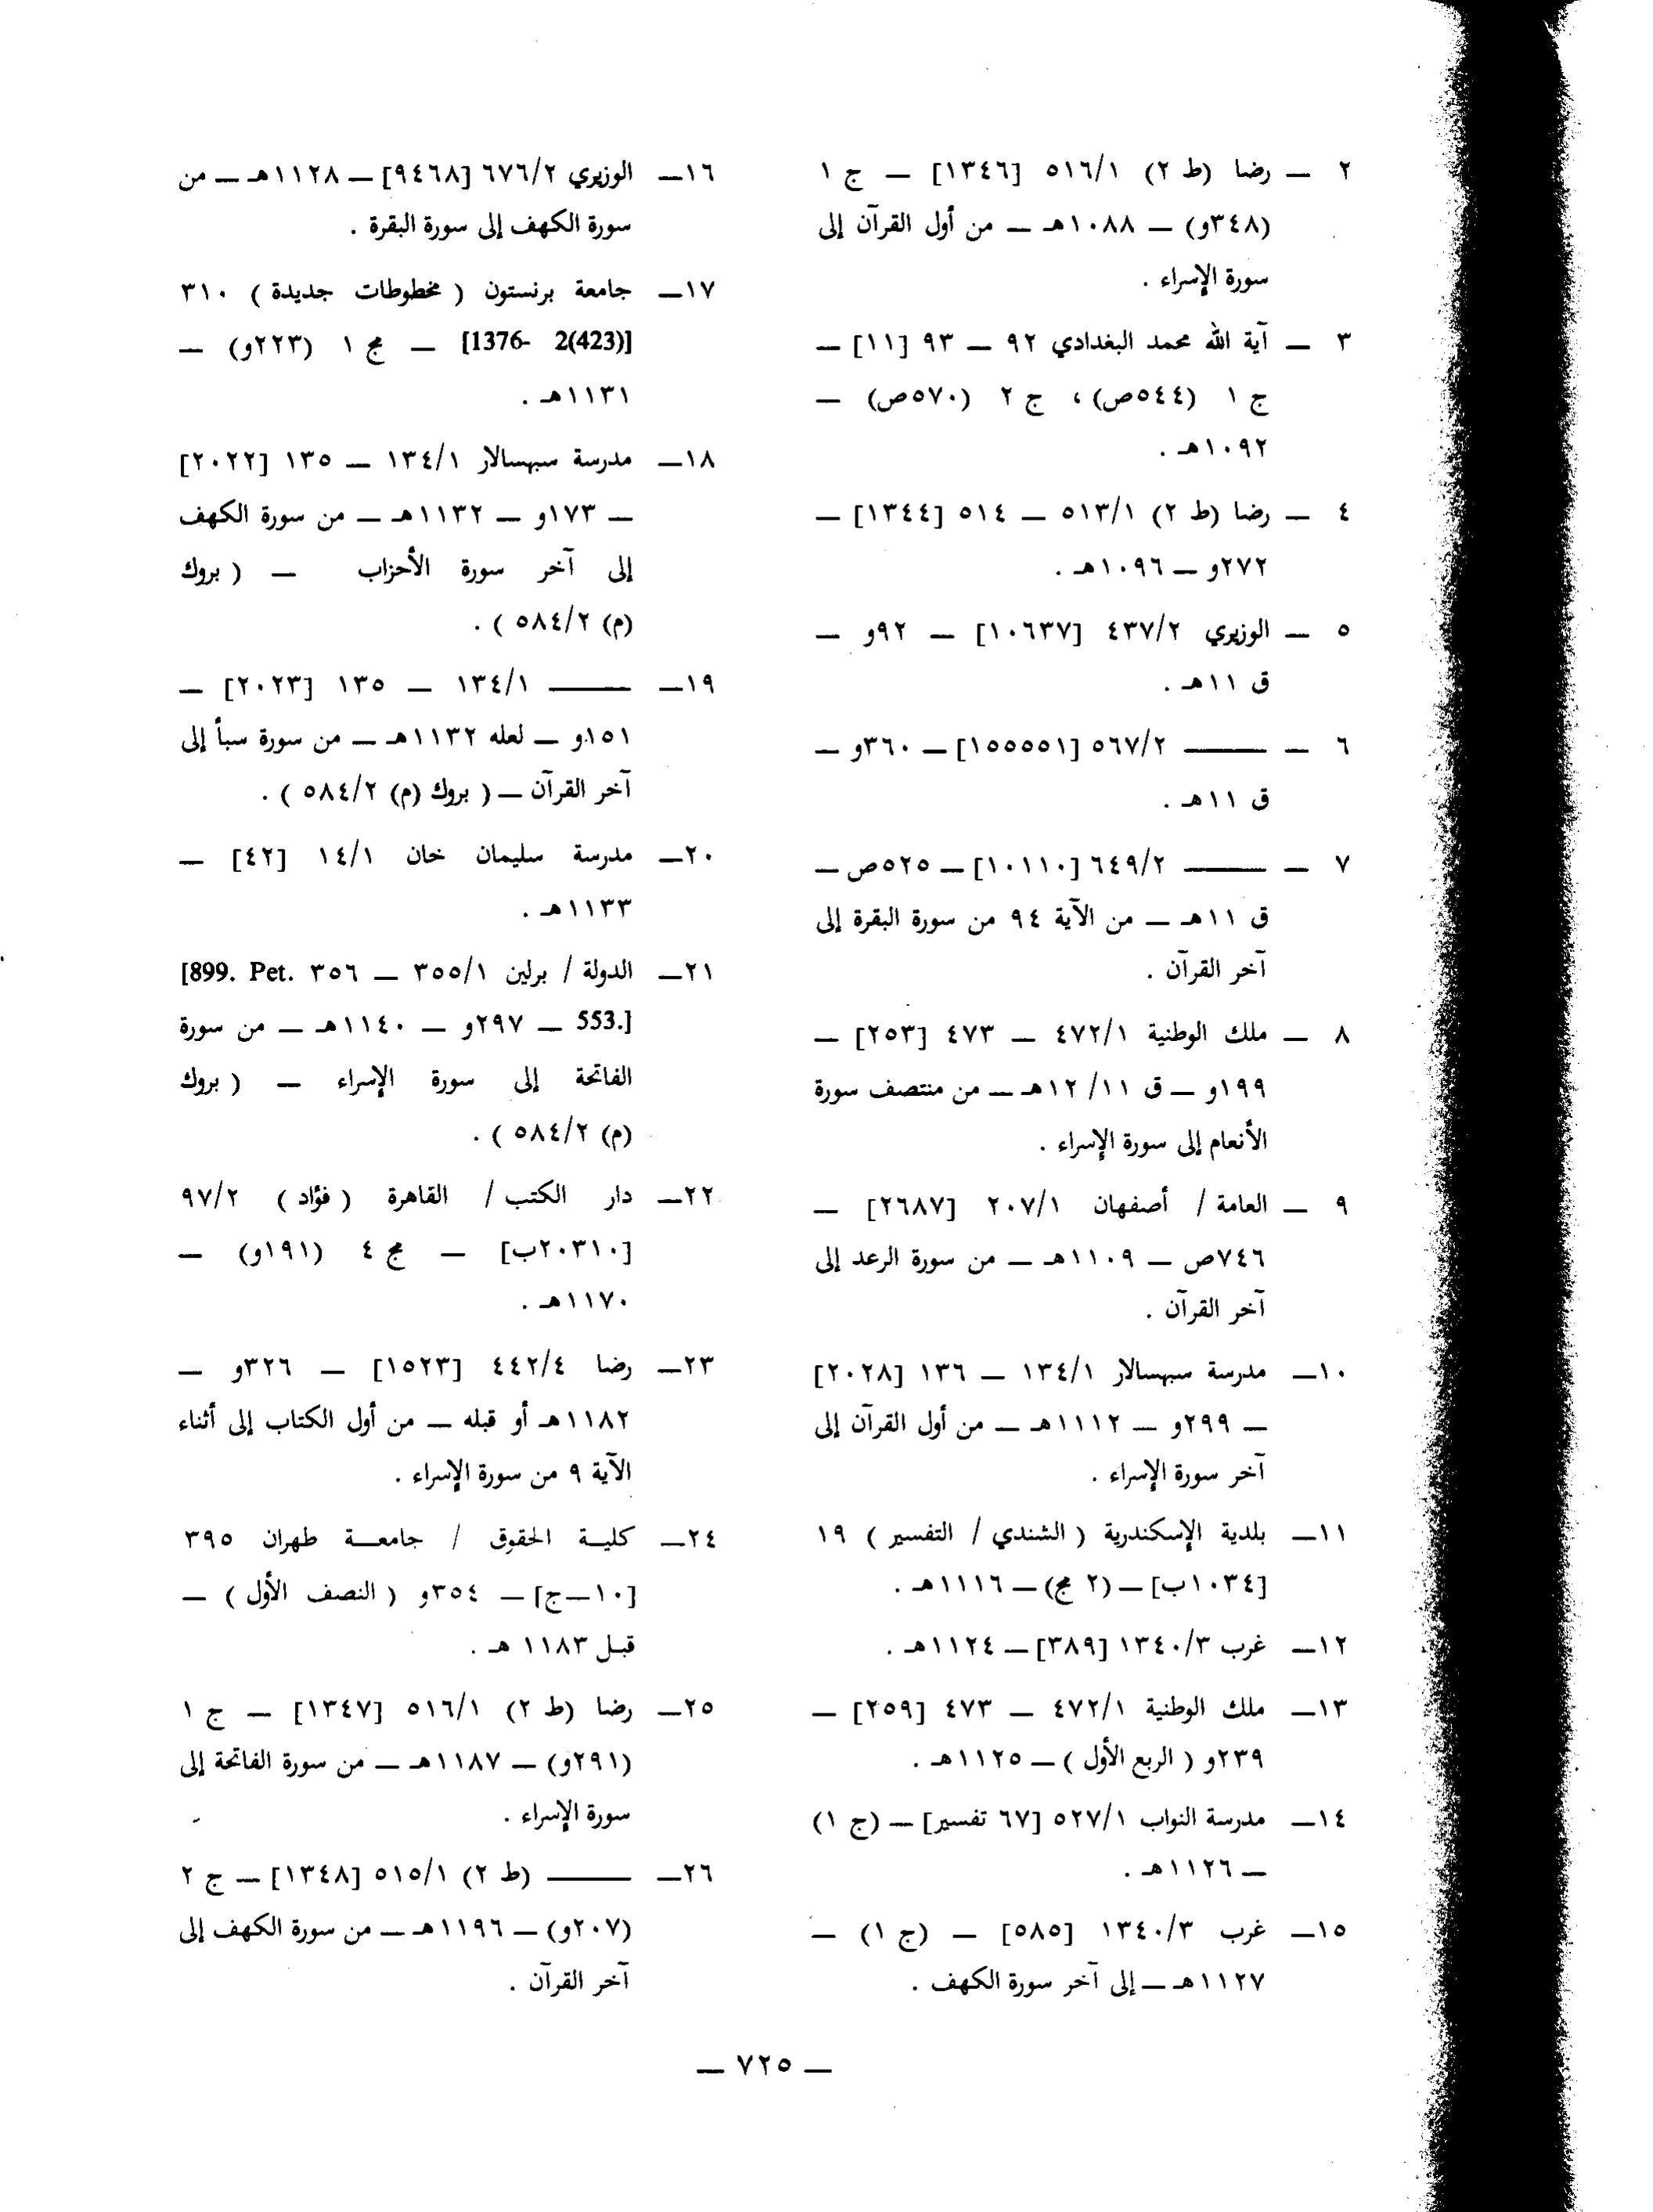 ٢ — رضا (ط ٢) ٥١٦/١ [١٣٤٦] — ج ١
(٣٤٨و) — ١٠٨٨هـ — من أول القرآن إلى
سورة الإسراء .
٣ — آية الله محمد البغدادي ٩٢ — ٩٣ [١١] —
ج ١ (٥٤٤ص) ، ج ٢ (٥٧٠ص) —
١٠٩٢هـ .
٤ — رضا (ط ٢) ٥١٣/١ — ٥١٤ [١٣٤٤] —
٢٧٢و — ١٠٩٦هـ .
٥ — الوزيري ٤٣٧/٢ [١٠٦٣٧] — ٩٢و —
ق ١١هـ .
٦ — —— ٥٦٧/٢ [١٥٥٥٥١] — ٣٦٠و —
ق ١١هـ .
٧ — —— ٦٤٩/٢ [١٠١١٠] — ٥٢٥ص —
ق ١١هـ — من الآية ٩٤ من سورة البقرة إلى
آخر القرآن .
٨ — ملك الوطنية ٤٧٢/١ — ٤٧٣ [٢٥٣] —
١٩٩و — ق ١١/ ١٢هـ — من منتصف سورة
الأنعام إلى سورة الإسراء .
٩ — العامة / أصفهان ٢٠٧/١ [٢٦٨٧] —
٧٤٦ص — ١١٠٩هـ — من سورة الرعد إلى
آخر القرآن .
١٠— مدرسة سبهسالار ١٣٤/١ — ١٣٦ [٢٠٢٨]
— ٢٩٩و — ١١١٢هـ — من أول القرآن إلى
آخر سورة الإسراء .
١١— بلدية الإسكندرية ( الشندي / التفسير ) ١٩
[١٠٣٤ب] — (٢ مج) — ١١١٦هـ .
١٢— غرب ١٣٤٠/٣ [٣٨٩] — ١١٢٤هـ .
١٣— ملك الوطنية ٤٧٢/١ — ٤٧٣ [٢٥٩] —
٢٣٩و ( الربع الأول ) — ١١٢٥هـ .
١٤— مدرسة النواب ٥٢٧/١ [٦٧ تفسير] — (ج ١)
— ١١٢٦هـ .
١٥— غرب ١٣٤٠/٣ [٥٨٥] — (ج ١) —
١١٢٧هـ — إلى آخر سورة الكهف .
١٦— الوزيري ٦٧٦/٢ [٩٤٦٨] — ١١٢٨هـ — من
سورة الكهف إلى سورة البقرة .
١٧— جامعة برنستون ( مخطوطات جديدة ) ٣١٠
[1376- 2(423)] — مج ١ (٢٢٣و) —
١١٣١هـ .
١٨— مدرسة سبهسالار ١٣٤/١ — ١٣٥ [٢٠٢٢]
— ١٧٣و — ١١٣٢هـ — من سورة الكهف
إلى آخر سورة الأحزاب — ( بروك
(م) ٥٨٤/٢ ) .
١٩— —— ١٣٤/١ — ١٣٥ [٢٠٢٣] —
١٥١و — لعله ١١٣٢هـ — من سورة سبأ إلى
آخر القرآن — ( بروك (م) ٥٨٤/٢ ) .
٢٠— مدرسة سليمان خان ١٤/١ [٤٢] —
١١٣٣هـ .
٢١— الدولة / برلين ٣٥٥/١ — ٣٥٦ [899. Pet.
553.] — ٢٩٧و — ١١٤٠هـ — من سورة
الفاتحة إلى سورة الإسراء — ( بروك
(م) ٥٨٤/٢ ) .
٢٢— دار الكتب / القاهرة ( فؤاد ) ٩٧/٢
[٢٠٣١٠ب] — مج ٤ (١٩١و) —
١١٧٠هـ .
٢٣— رضا ٤٤٢/٤ [١٥٢٣] — ٣٢٦و —
١١٨٢هـ أو قبله — من أول الكتاب إلى أثناء
الآية ٩ من سورة الإسراء .
٢٤— كليـة الحقوق / جامعـة طهران ٣٩٥
[١٠—ج] — ٣٥٤و ( النصف الأول ) —
قبل ١١٨٣ هـ .
٢٥— رضا (ط ٢) ٥١٦/١ [١٣٤٧] — ج ١
(٢٩١و) — ١١٨٧هـ — من سورة الفاتحة إلى
سورة الإسراء .
٢٦— —— (ط ٢) ٥١٥/١ [١٣٤٨] — ج ٢
(٢٠٧و) — ١١٩٦هـ — من سورة الكهف إلى
آخر القرآن .
— ٧٢٥ —